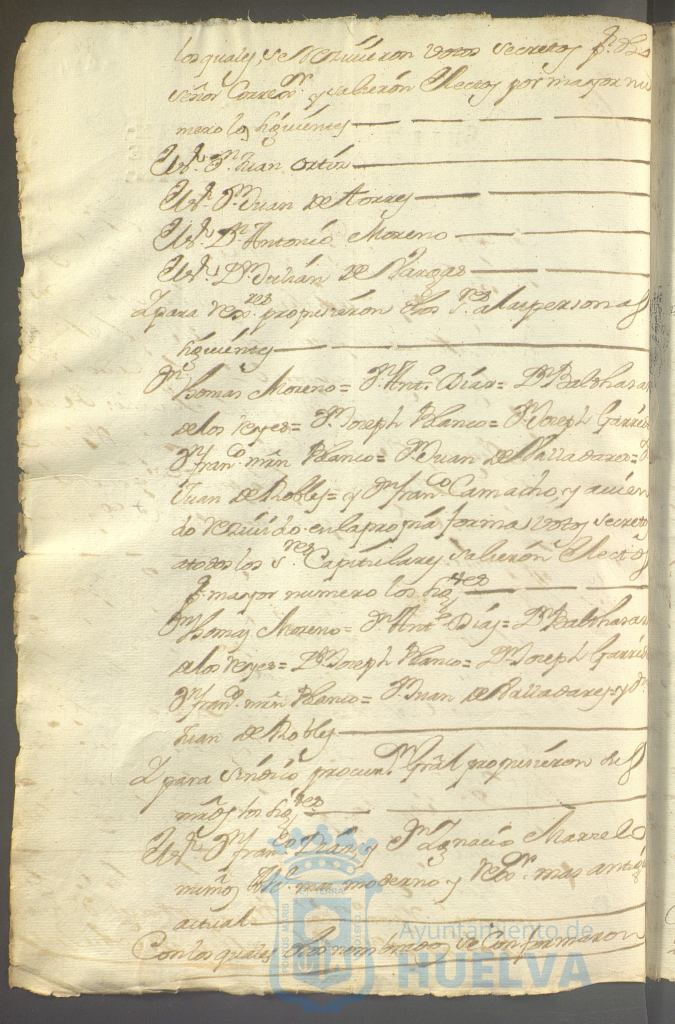 los quales, se recivieron votos secretos p.r dho
señor Corre.or y salieron electos por mayor nu
mero los siguientes
D.n Juan Ortiz
D.n Juan de Torres
D.n Antonio Moreno
D.n Julián de Vargas
Y para Rex.res propusieron dhos S.res a las personas
siguientes
D.n Thomas Moreno = D.n Ant.o Días = D.n Balthasar
de los reyes = D.n Joseph Blanco = D.n Joseph Garrid
D.n Fran.co mrñ Blanco = D.n Juan de Valladares = D
Juan de Robles = y D.n fran.co Camacho, y avien
do recivido en la propia forma, votos secretos
a todos los S.res Capitulares salieron Electos
p.r mayor numero los sig.tes
D.n Thomas Moreno = D.n Ant.o Días = D.n Balthasar
de los reyes = D.n Joseph Blanco = D.n Joseph Garrid
D.n fran.co mrñ Blanco = D.n Juan de Valladares = y D.n
Juan de Robles
Y para Síndico procur.or Gral propusieron de sí
mismos los sig.tes
D.n Fran.co y D.n Ignacio
mas moderno y Rex.or mas antig
actual
Con los quales dhos nombrados se conformaron
Ayuntamiento de
HUELVA